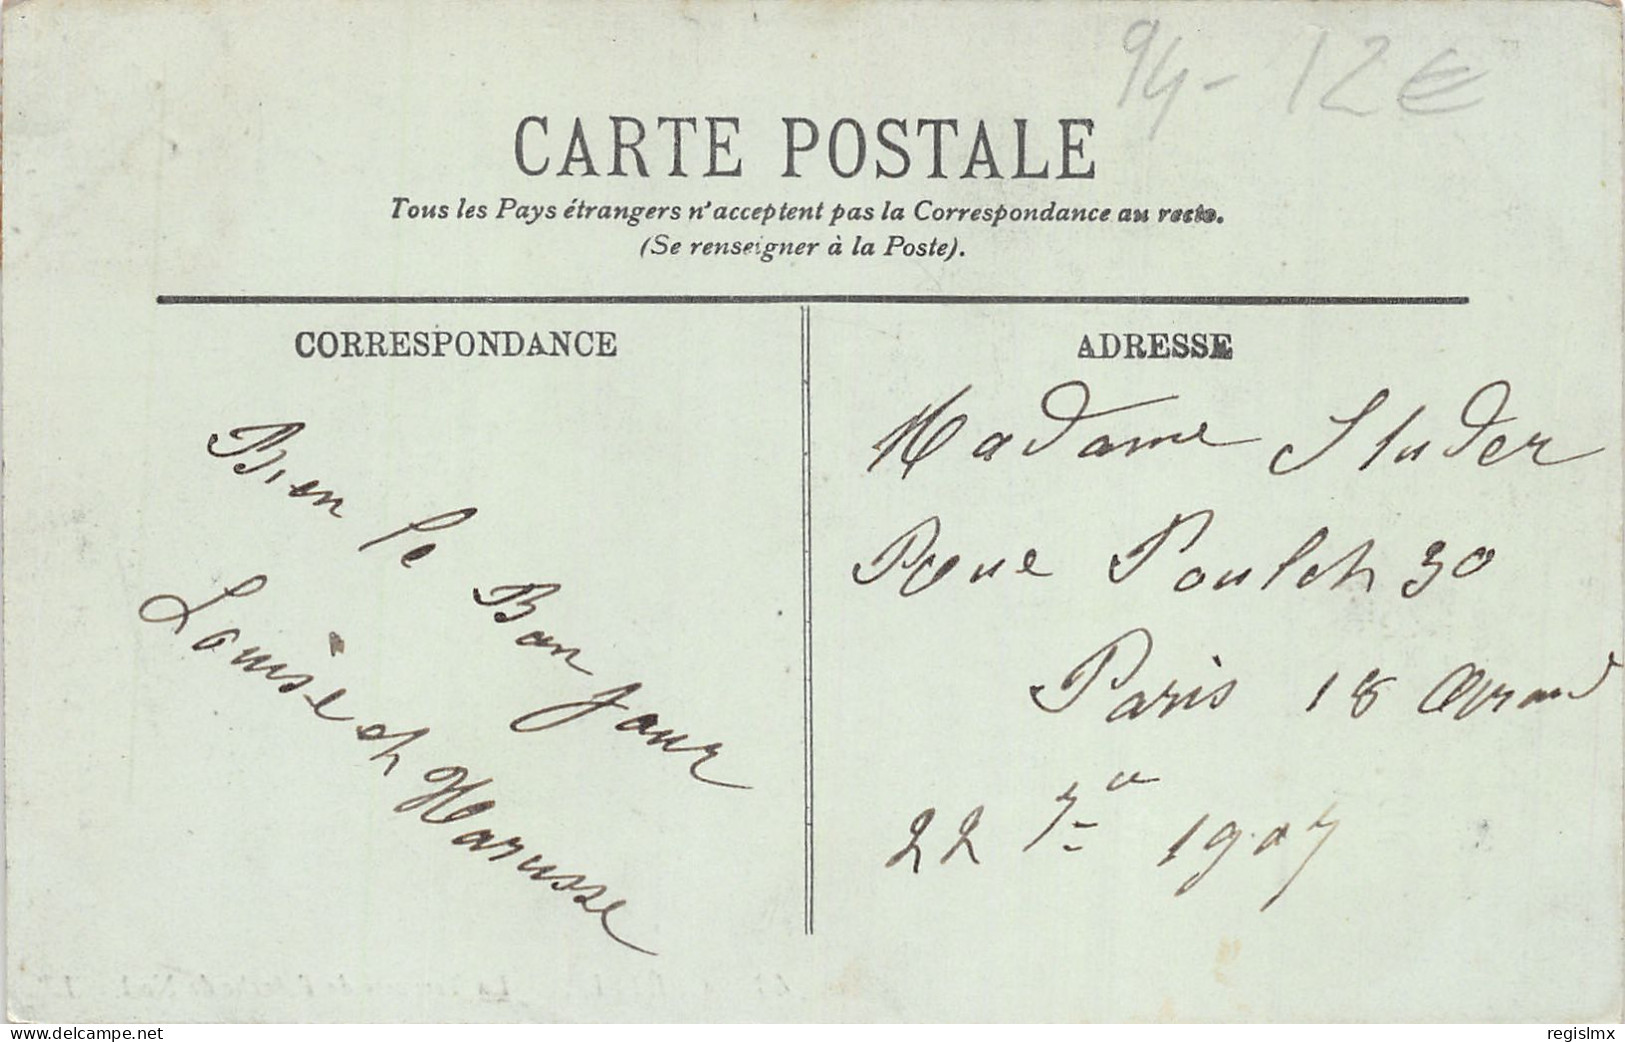 94 - 12€
CARTE POSTALE
Tous les Pays étrangers n'acceptent pas la Correspondance au recto.
(Se renseigner à la Poste).
CORRESPONDANCE
ADRESSE
Bien le
Bon jour
Louise et
Madame Studer
Rue Poulet 30
Paris 18
22 1907
www.delcampe.net
regislmx